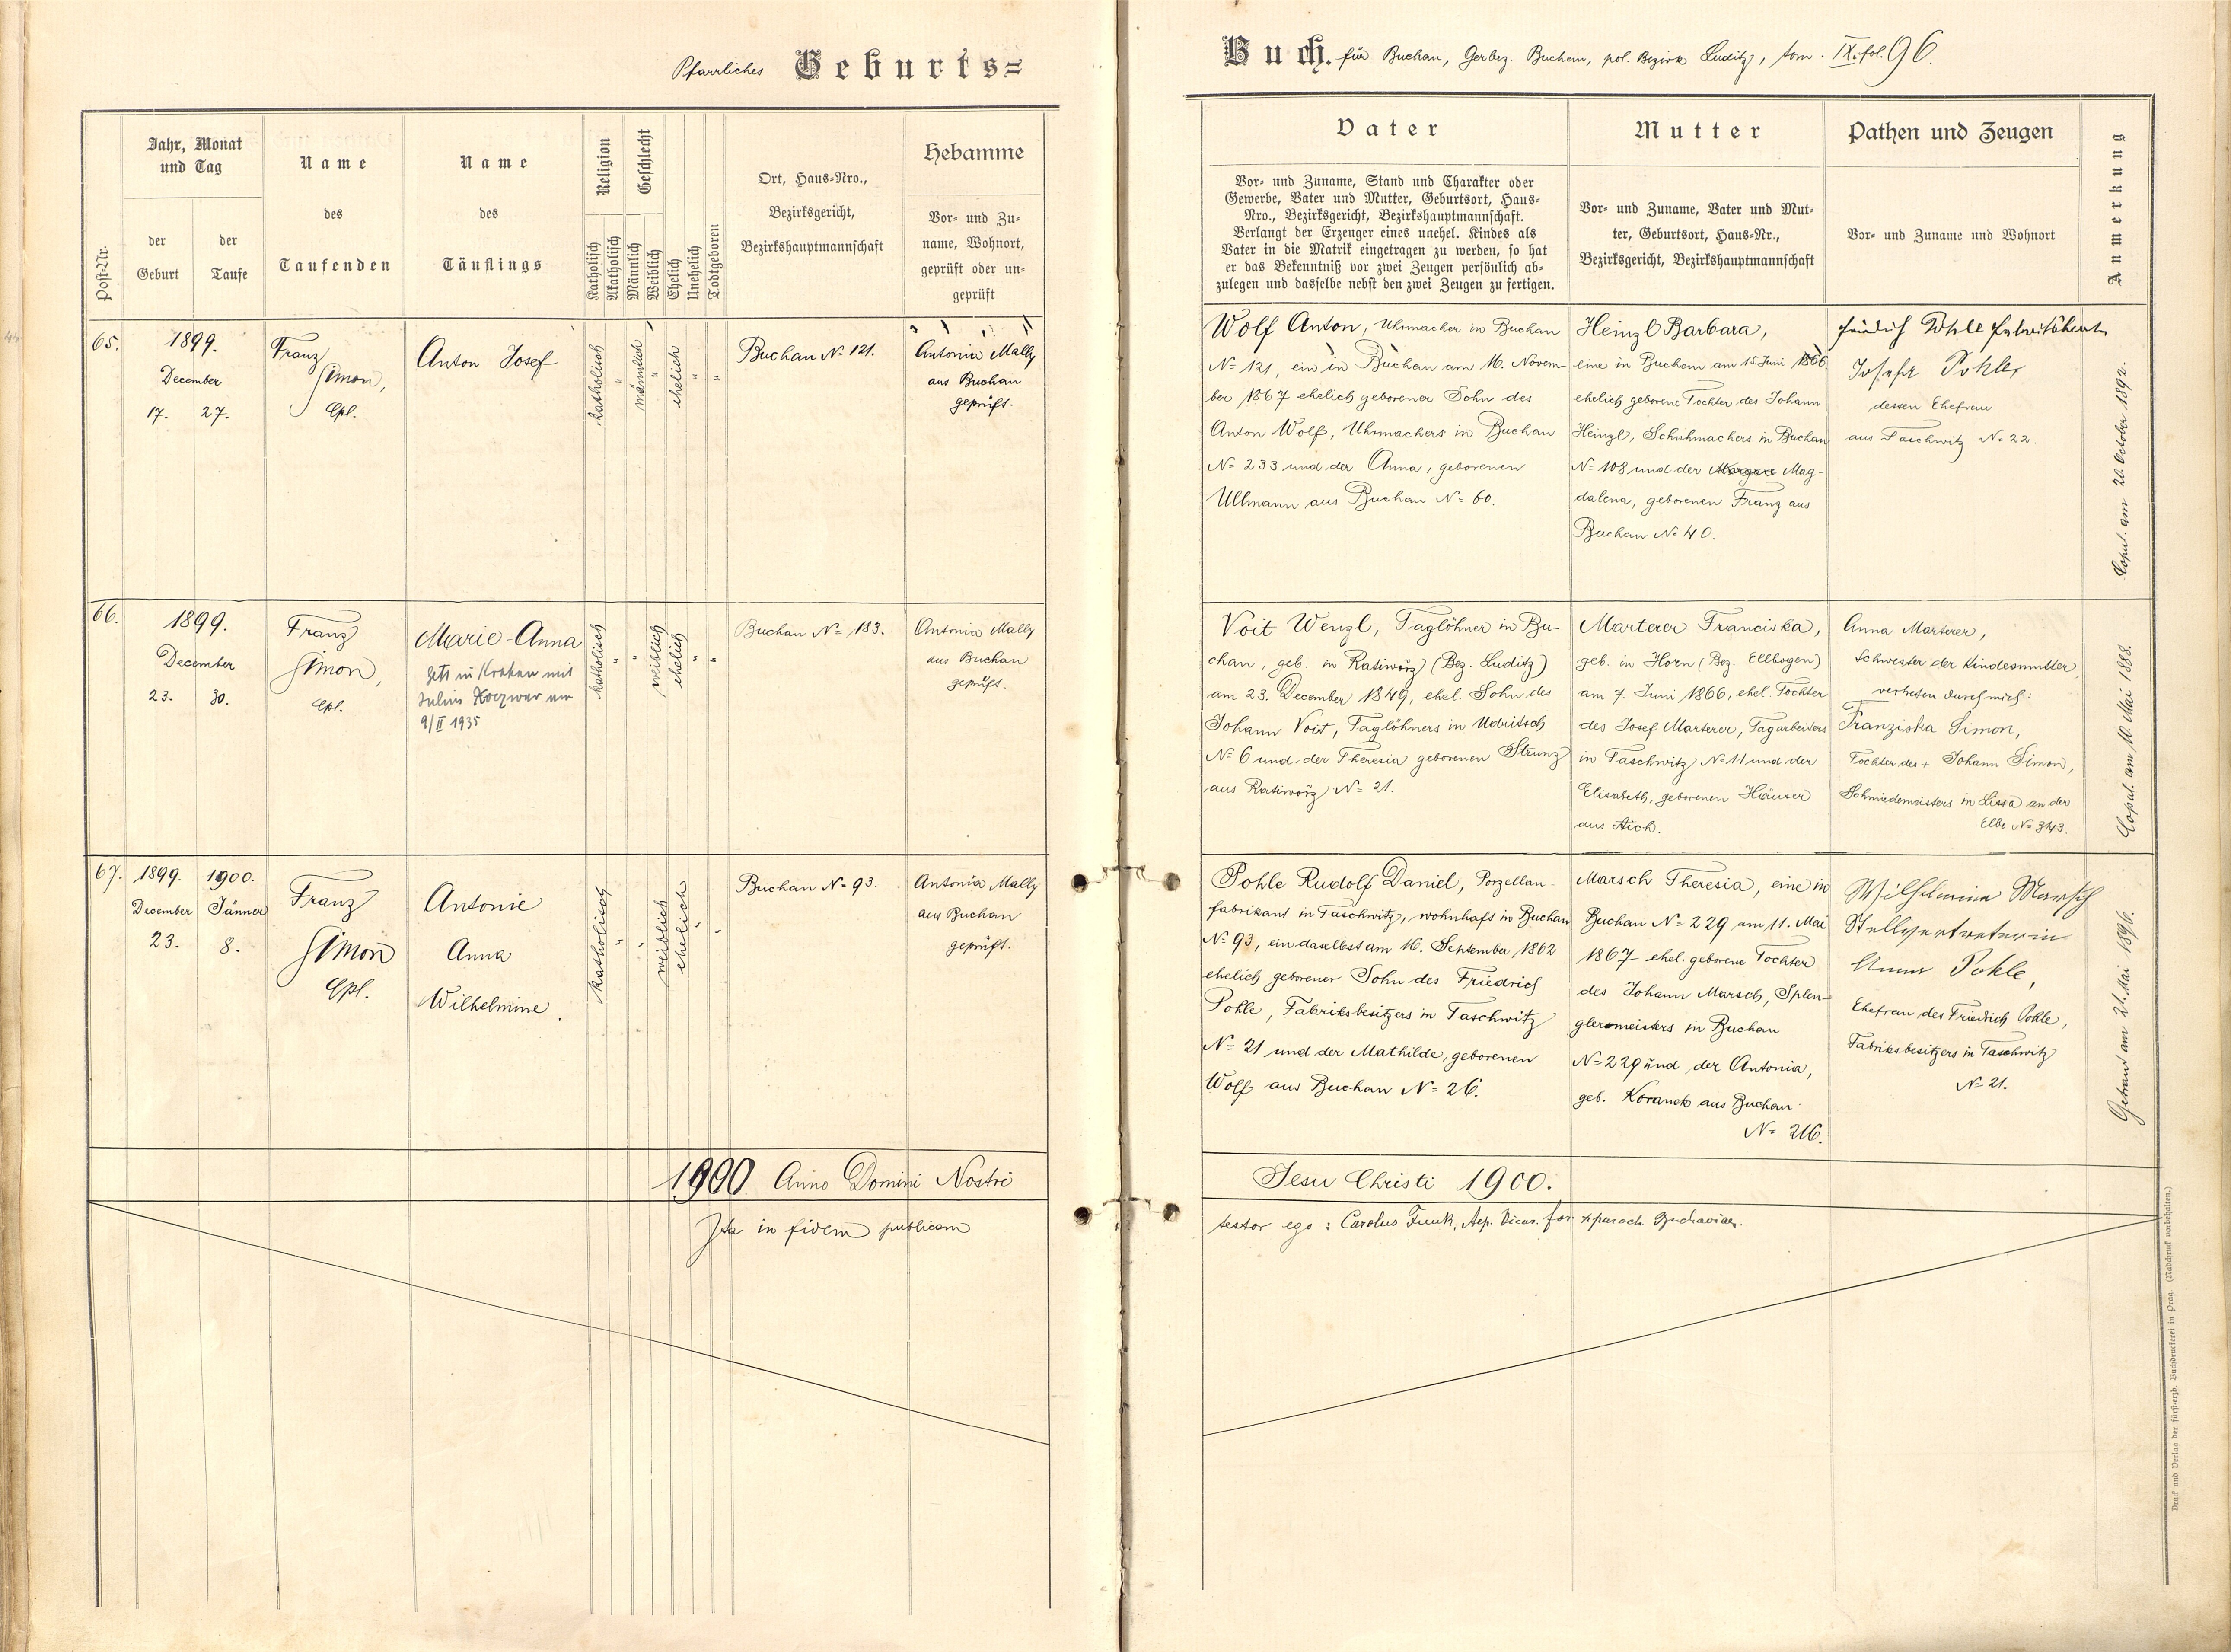 Pfarrliches Geburts=
Buch. für Buchau, Ger.bez. Buchau, pol. Bezirk Luditz, tom. IX. fol. 96.
Post-Nr.
Jahr, Monat
und Tag
der
Geburt
der
Taufe
Name
des
Taufenden
Name
des
Täuflings
Religion
Katholisch
Akatholisch
Geschlecht
Männlich
Weiblich
Ehelich
Unehelich
Todtgeboren
Ort, Haus-Nro.,
Bezirksgericht,
Bezirkshauptmannschaft
Hebamme
Vor- und Zu-
name, Wohnort,
geprüft oder un-
geprüft
Vater
Vor- und Zuname, Stand und Charakter oder
Gewerbe, Vater und Mutter, Geburtsort, Haus-
Nro., Bezirksgericht, Bezirkshauptmannschaft.
Verlangt der Erzeuger eines unehel. Kindes als
Vater in die Matrik eingetragen zu werden, so hat
er das Bekenntniß vor zwei Zeugen persönlich ab-
zulegen und dasselbe nebst den zwei Zeugen zu fertigen.
Mutter
Vor- und Zuname, Vater und Mut-
ter, Geburtsort, Haus-Nr.,
Bezirksgericht, Bezirkshauptmannschaft
Pathen und Zeugen
Vor- und Zuname und Wohnort
Anmerkung
65.
1899.
December
17. 27.
Franz
Simon,
Cpl.
Anton Josef
katholisch
"
männlich
"
ehelich
"
"
Buchau No 121.
Antonia Mally
aus Buchau
geprüft.
Wolf Anton, Uhrmacher in Buchau
No 121, ein in Buchau am 16. Novem-
ber 1867 ehelich geborener Sohn des
Anton Wolf, Uhrmachers in Buchau
No 233 und der Anna, geborenen
Ullmann aus Buchau No 60.
Heinzl Barbara,
eine in Buchau am 15. Juni 1866
ehelich geborene Tochter des Johann
Heinzl, Schuhmachers in Buchau
No 108 und der Mag-
dalena, geborenen Franz aus
Buchau No 40.
Pohle
Pohle,
dessen Ehefrau
aus Taschwitz No 22.
Copul. am 26. October 1892.
66.
1899.
December
23. 30.
Franz
Simon,
Cpl.
Marie Anna
in Krakau mit
Julius am
9/II 1935
katholisch
"
"
weiblich
ehelich
"
"
Buchau No 183.
Antonia Mally
aus Buchau
geprüft.
Voit Wenzl, Taglöhner in Bu-
chau, geb. in Ratiworz (Bez. Luditz)
am 23. December 1849, ehel. Sohn des
Johann Voit, Taglöhners in Udritsch
No 6 und der Theresia geborenen Strunz
aus Ratiworz No 21.
Marterer Franciska,
geb. in Horn (Bez. Ellbogen)
am 7. Juni 1866, ehel. Tochter
des Josef Marterer, Tagarbeiters
in Taschwitz No 11 und der
Elisabeth, geborenen Häuser
aus Aich.
Anna Marterer,
Schwester der Kindesmutter,
vertreten durch mich:
Franziska Simon,
Tochter des + Johann Simon,
Schmiedemeisters in Lissa an der
Elbe No 343.
Copul. am 10. Mai 1888.
67.
1899. 1900.
December Jänner
23. 8.
Franz
Simon
Cpl.
Antonie
Anna
Wilhelmine.
katholisch
"
"
weiblich
ehelich
"
"
Buchau No 93.
Antonia Mally
aus Buchau
geprüft.
Pohle Rudolf Daniel, Porzellan-
fabrikant in Taschwitz, wohnhaft in Buchau
No 93, ein daselbst am 16. September 1862
ehelich geborener Sohn des Friedrich
Pohle, Fabriksbesitzers in Taschwitz
No 21 und der Mathilde, geborenen
Wolf aus Buchau No 26.
Marsch Theresia, eine in
Buchau No 229 am 11. Mai
1867 ehel. geborene Tochter
des Johann Marsch, Splen-
glermeisters in Buchau
No 229 und der Antonia,
geb. Koranek aus Buchau
No 216.
Wilhelmine Marsch
Stellvertreterin
Anna Pohle,
Ehefrau des Friedrich Pohle,
Fabriksbesitzers in Taschwitz
No 21.
Getraut am 21. Mai 1896.
1900 Anno Domini Nostri
Jesu Christi 1900.
Ita in fidem publicam
testor ego: Carolus Funk, Aep. Vicar. for
Druck und Verlag der fürst-erzb. Buchdruckerei in Prag. (Nachdruck vorbehalten.)